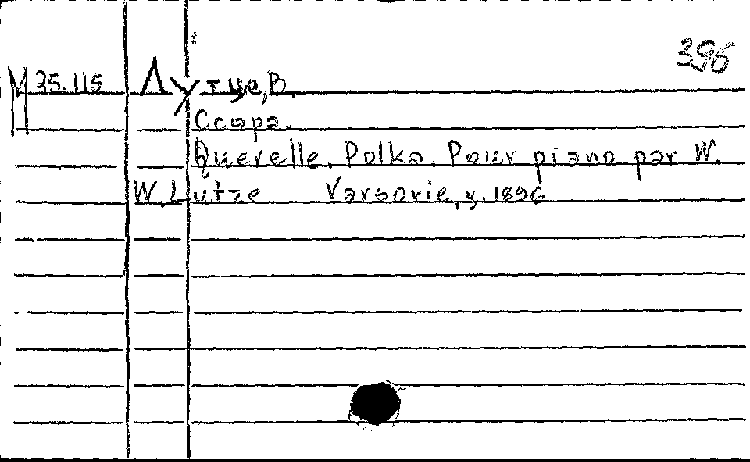 396
М 35.115 Лутце, В.
Ссора.
Querelle. Polka. Pour piano par W.
W. Lutze Varsovie, у. 1896